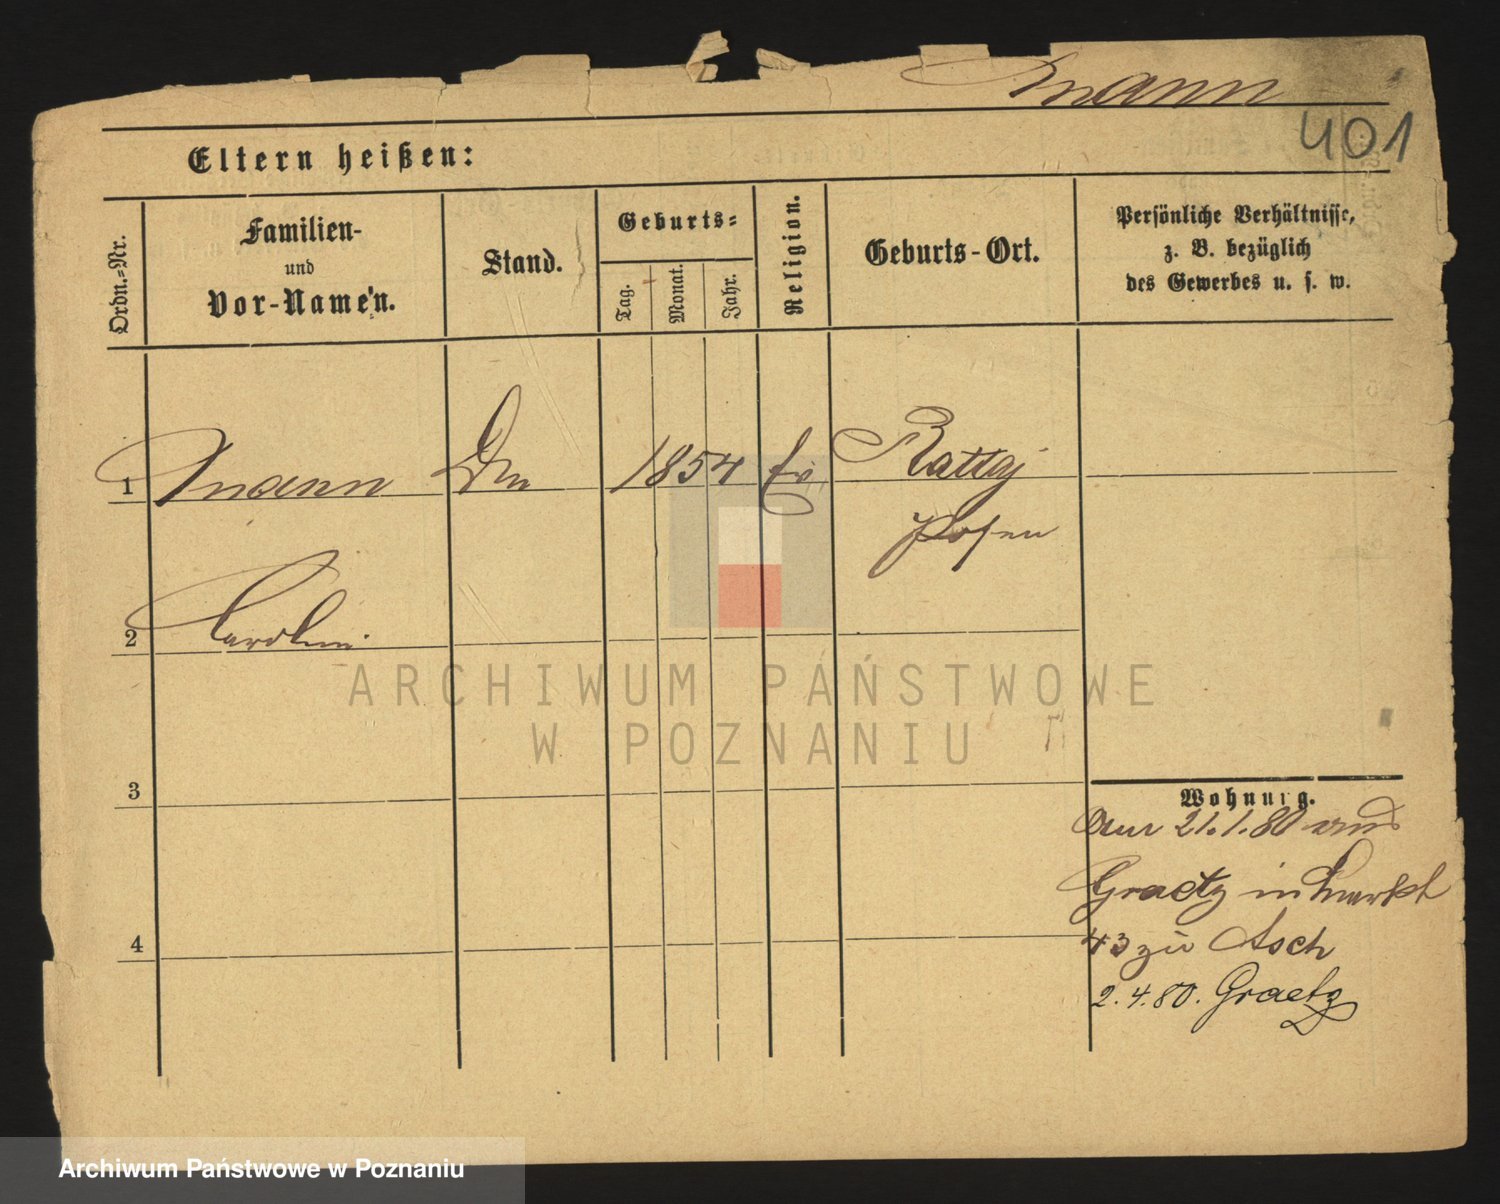 Mann
401
Eltern heißen:
Ordn.-Nr.
Familien-
und
Vor-Namen.
Stand.
Geburts-
Tag.
Monat.
Jahr.
Religion.
Geburts-Ort.
Persönliche Verhältnisse,
z. B. bezüglich
des Gewerbes u. s. w.
1 Mann 1854 Rattay
Posen
2
3
4
Wohnung.
21.1.80 aus
Graetz in Markt
43 zu Asch
2.4.80. Graetz
ARCHIWUM PAŃSTWOWE
W POZNANIU
Archiwum Państwowe w Poznaniu